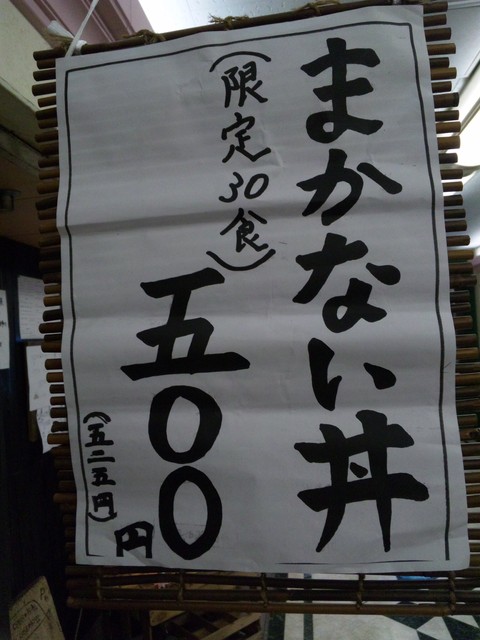 まかない丼
(限定30食)
五〇〇円
(五二五円)